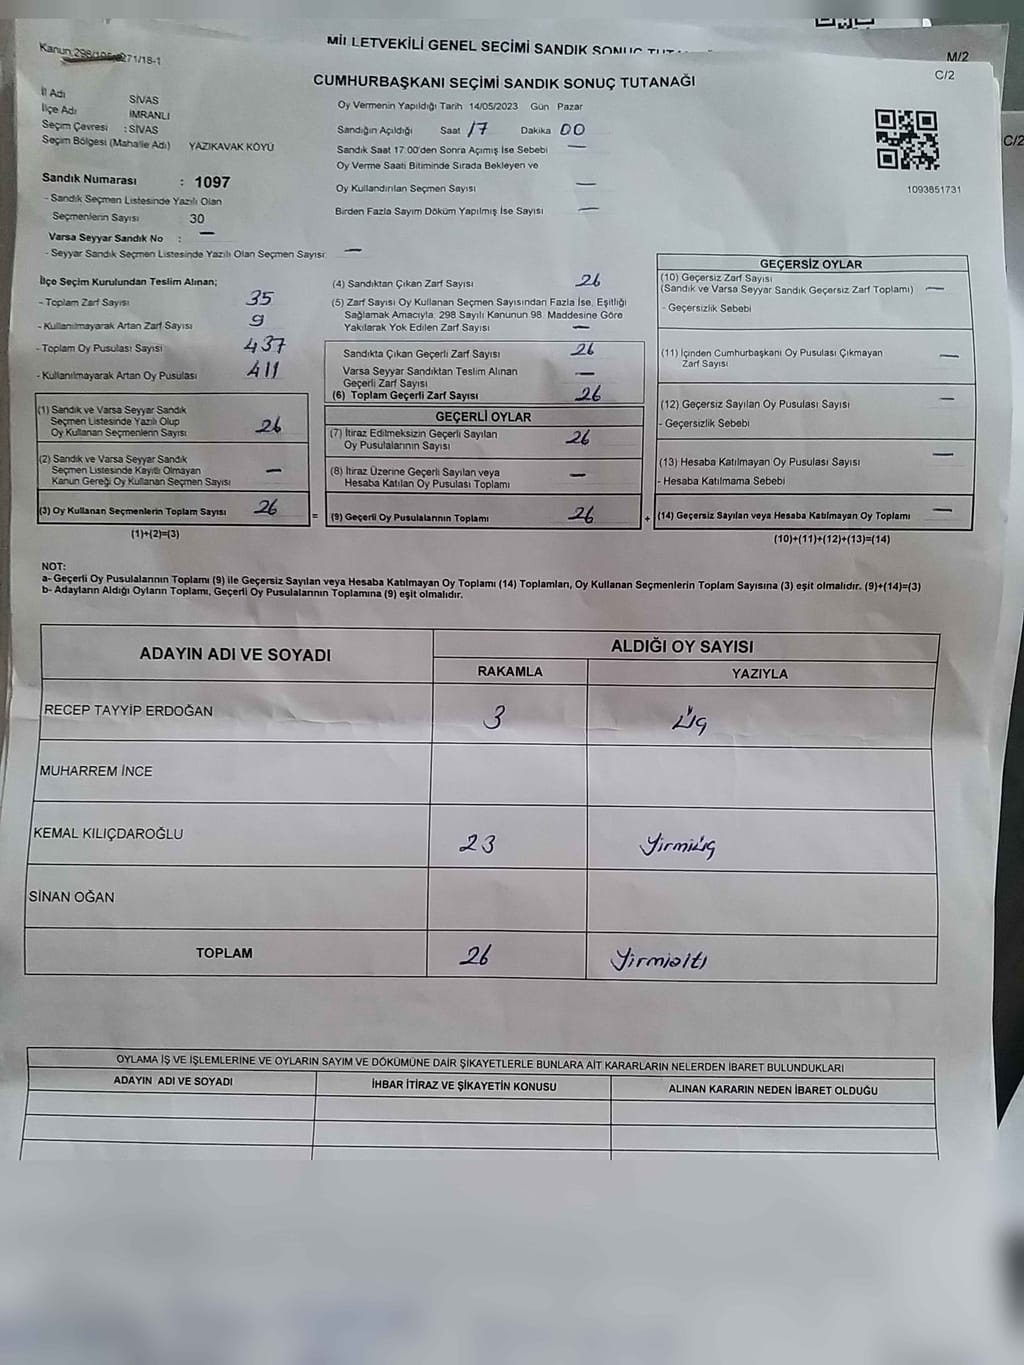 MİLLETVEKİLİ GENEL SEÇİMİ SANDIK SONUÇ
M/2
Kanun 298/105, 271/18-1
CUMHURBAŞKANI SEÇİMİ SANDIK SONUÇ TUTANAĞI
C/2
C/2
İl Adı SİVAS
İlçe Adı İMRANLI
Seçim Çevresi : SİVAS
Seçim Bölgesi (Mahalle Adı) YAZIKAVAK KÖYÜ
Sandık Numarası : 1097
- Sandık Seçmen Listesinde Yazılı Olan
Seçmenlerin Sayısı 30
Varsa Seyyar Sandık No : —
- Seyyar Sandık Seçmen Listesinde Yazılı Olan Seçmen Sayısı: —
Oy Vermenin Yapıldığı Tarih 14/05/2023 Gün Pazar
Sandığın Açıldığı Saat 17 Dakika 00
Sandık Saat 17:00'den Sonra Açımış İse Sebebi —
Oy Verme Saati Bitiminde Sırada Bekleyen ve
Oy Kullandırılan Seçmen Sayısı —
Birden Fazla Sayım Döküm Yapılmış İse Sayısı —
1093851731
İlçe Seçim Kurulundan Teslim Alınan;
- Toplam Zarf Sayısı 35
- Kullanılmayarak Artan Zarf Sayısı 9
- Toplam Oy Pusulası Sayısı 437
- Kullanılmayarak Artan Oy Pusulası 411
(1) Sandık ve Varsa Seyyar Sandık
Seçmen Listesinde Yazılı Olup
Oy Kullanan Seçmenlerin Sayısı 26
(2) Sandık ve Varsa Seyyar Sandık
Seçmen Listesinde Kayıtlı Olmayan
Kanun Gereği Oy Kullanan Seçmen Sayısı —
(3) Oy Kullanan Seçmenlerin Toplam Sayısı 26
(1)+(2)=(3)
(4) Sandıktan Çıkan Zarf Sayısı 26
(5) Zarf Sayısı Oy Kullanan Seçmen Sayısından Fazla İse, Eşitliği
Sağlamak Amacıyla, 298 Sayılı Kanunun 98. Maddesine Göre
Yakılarak Yok Edilen Zarf Sayısı —
Sandıkta Çıkan Geçerli Zarf Sayısı 26
Varsa Seyyar Sandıktan Teslim Alınan
Geçerli Zarf Sayısı —
(6) Toplam Geçerli Zarf Sayısı 26
GEÇERLİ OYLAR
(7) İtiraz Edilmeksizin Geçerli Sayılan
Oy Pusulalarının Sayısı 26
(8) İtiraz Üzerine Geçerli Sayılan veya
Hesaba Katılan Oy Pusulası Toplamı —
= (9) Geçerli Oy Pusulalarının Toplamı 26
GEÇERSİZ OYLAR
(10) Geçersiz Zarf Sayısı
(Sandık ve Varsa Seyyar Sandık Geçersiz Zarf Toplamı) —
- Geçersizlik Sebebi
(11) İçinden Cumhurbaşkanı Oy Pusulası Çıkmayan
Zarf Sayısı —
(12) Geçersiz Sayılan Oy Pusulası Sayısı —
- Geçersizlik Sebebi
(13) Hesaba Katılmayan Oy Pusulası Sayısı —
- Hesaba Katılmama Sebebi
+ (14) Geçersiz Sayılan veya Hesaba Katılmayan Oy Toplamı —
(10)+(11)+(12)+(13)=(14)
NOT:
a- Geçerli Oy Pusulalarının Toplamı (9) ile Geçersiz Sayılan veya Hesaba Katılmayan Oy Toplamı (14) Toplamları, Oy Kullanan Seçmenlerin Toplam Sayısına (3) eşit olmalıdır. (9)+(14)=(3)
b- Adayların Aldığı Oyların Toplamı, Geçerli Oy Pusulalarının Toplamına (9) eşit olmalıdır.
ADAYIN ADI VE SOYADI ALDIĞI OY SAYISI
RAKAMLA YAZIYLA
RECEP TAYYİP ERDOĞAN 3 Üç
MUHARREM İNCE
KEMAL KILIÇDAROĞLU 23 Yirmiüç
SİNAN OĞAN
TOPLAM 26 Yirmialtı
OYLAMA İŞ VE İŞLEMLERİNE VE OYLARIN SAYIM VE DÖKÜMÜNE DAİR ŞİKAYETLERLE BUNLARA AİT KARARLARIN NELERDEN İBARET BULUNDUKLARI
ADAYIN ADI VE SOYADI İHBAR İTİRAZ VE ŞİKAYETİN KONUSU ALINAN KARARIN NEDEN İBARET OLDUĞU